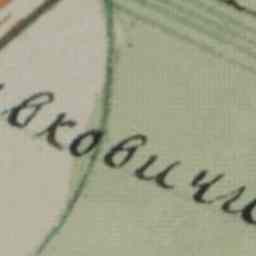 вковичи